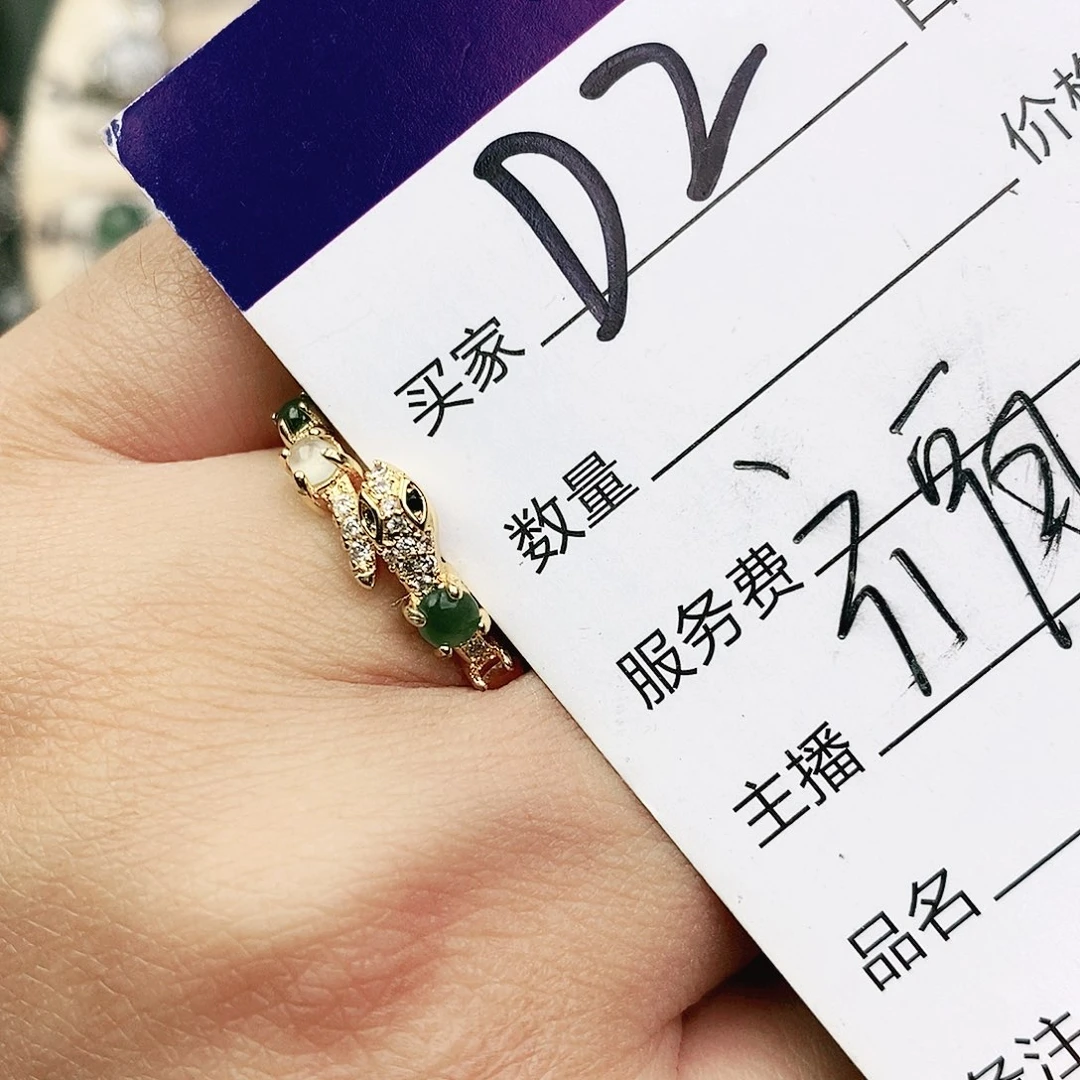 买家 D2
价格
数量
服务费
主播
品名
备注